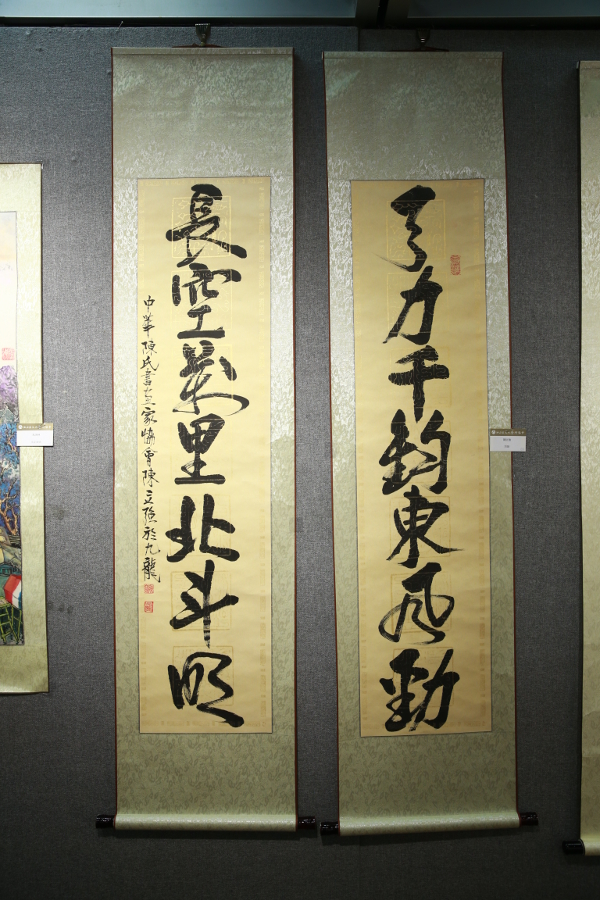 弓力千鈞東風勁
長空萬里北斗明
中華陳氏書畫家協會陳立強於九龍